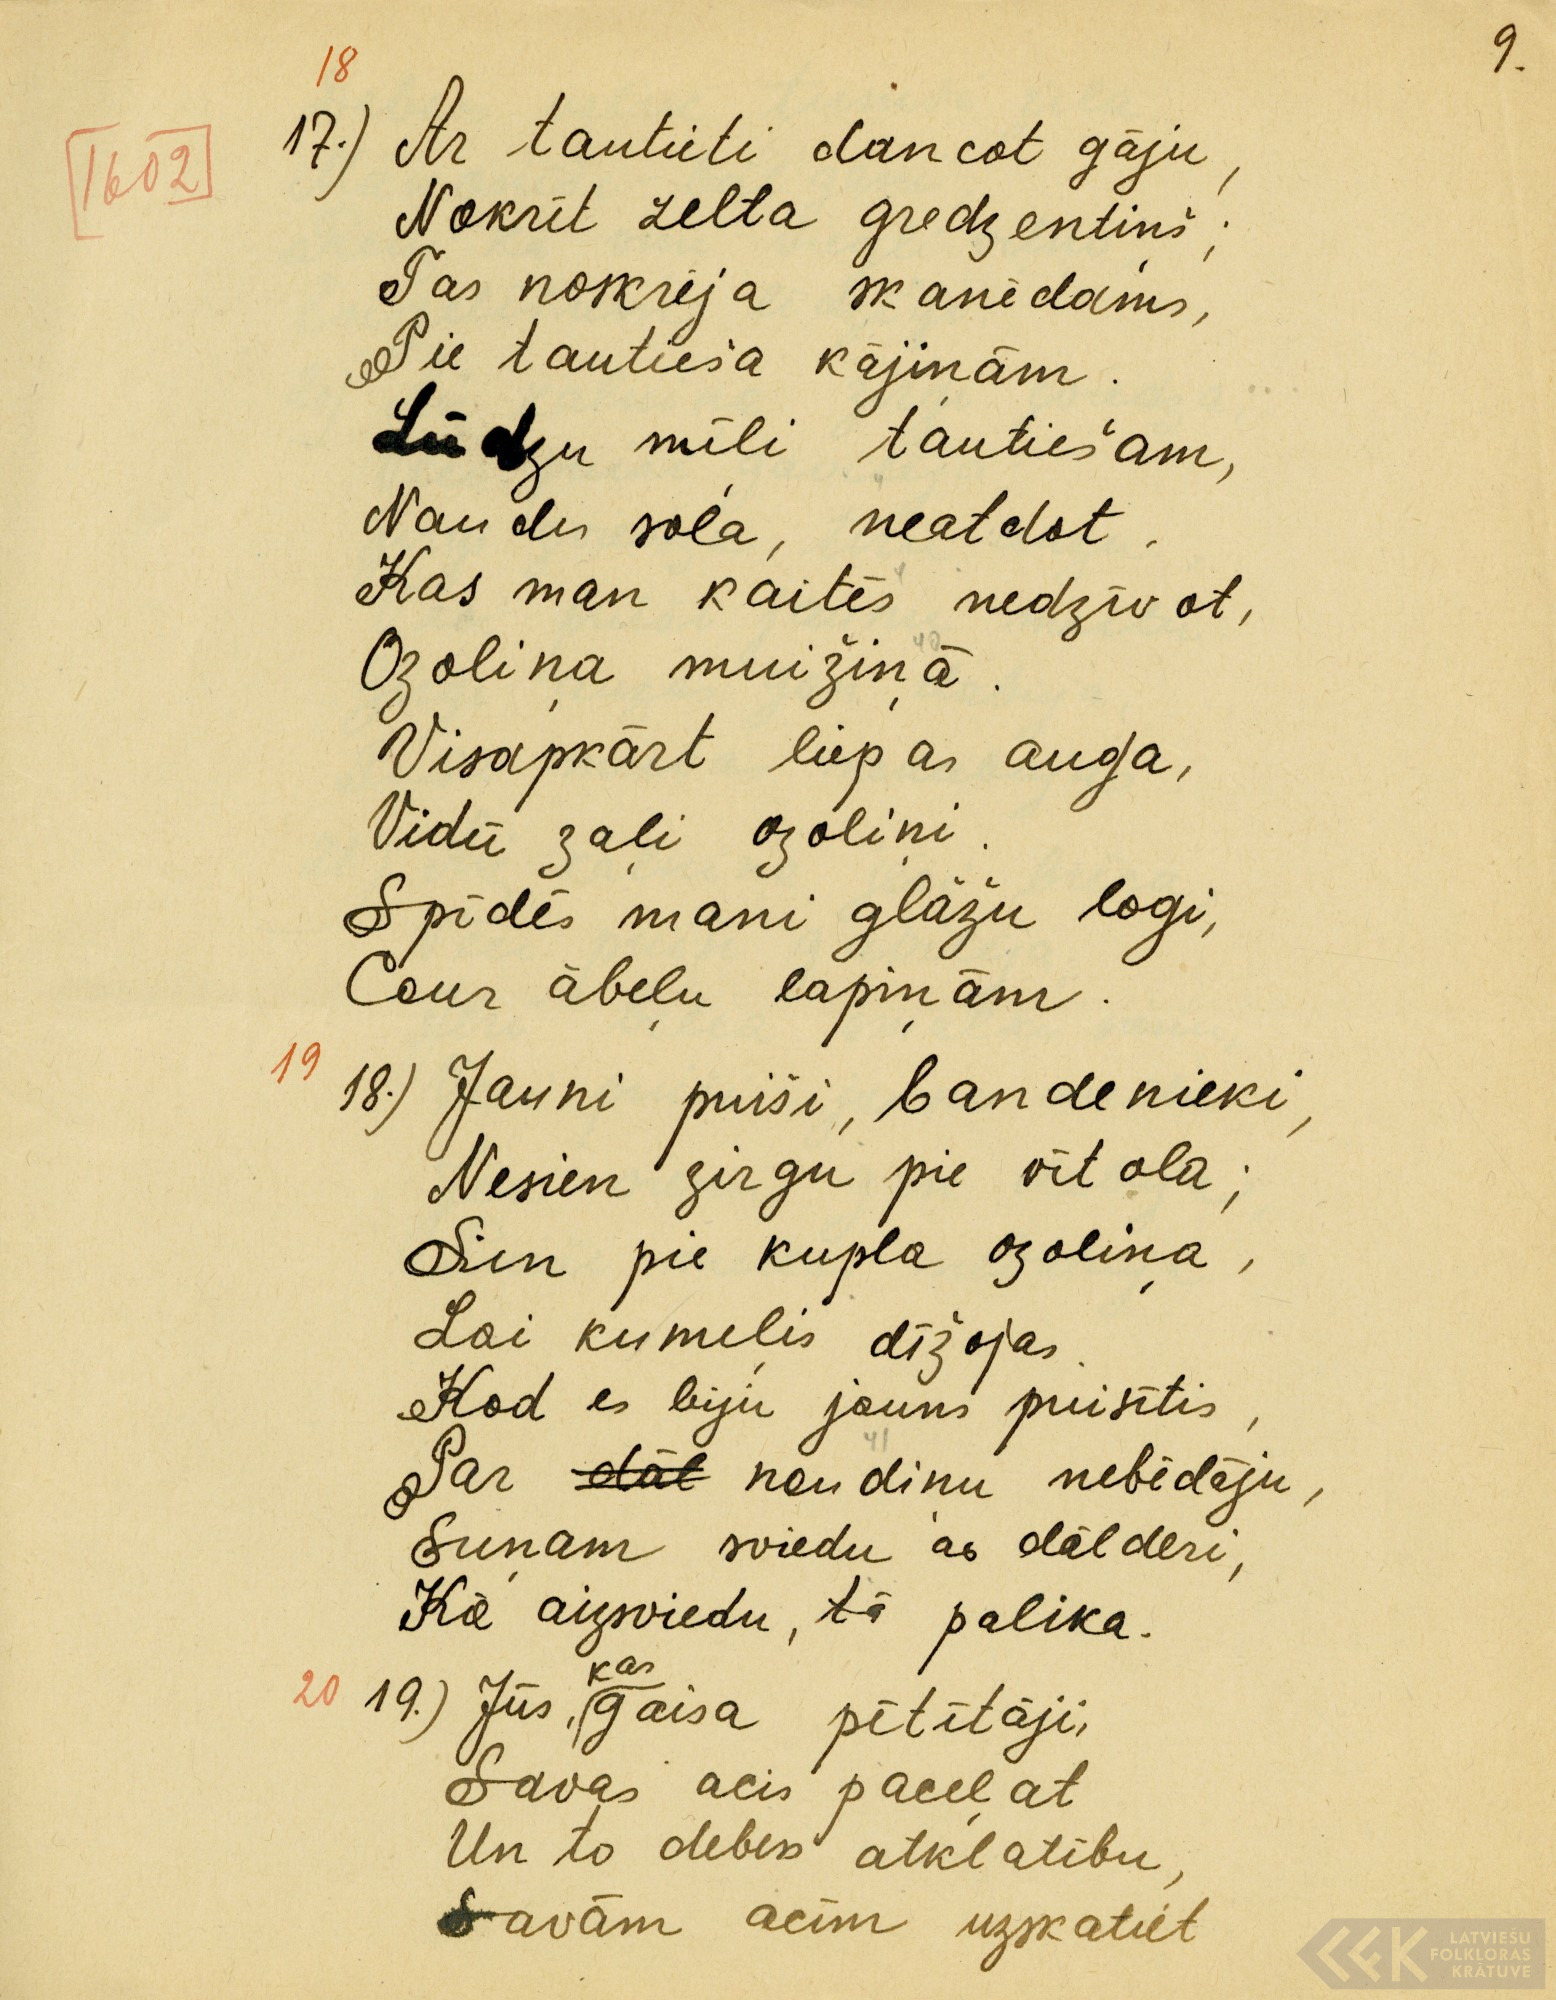 9.
18
1602
17.) Ar tautieti dancot gāju,
Nokrīt zelta gredzentiņš;
Tas noskrēja skanēdams,
Pie tautieša kājiņām.
Lūdzu mīļi tautiešam,
Naudu sola, neatdot.
Kas man kaitēs nedzīvot,
Ozoliņa muižiņā.
Visapkārt liepas auga,
Vidū zaļi ozoliņi.
Spīdēs mani glāžu logi,
Caur ābeļu lapiņām.
19
18.) Jauni puiši, bandenieki,
Nesien zirgu pie vītola;
Sien pie kupla ozoliņa,
Lai kumeļis dīžojas.
Kad es biju jauns puisītis,
Par dāl naudiņu nebēdāju,
Suņam sviedu as dālderi,
Kā aizsviedu, tā palika.
20
19.) Jūs, kas gaisa pētītāji,
Savas acis paceļat
Un to debess atklatību,
Savām acīm uzskatiet
LATVIEŠU
FOLKLORAS
KRĀTUVE